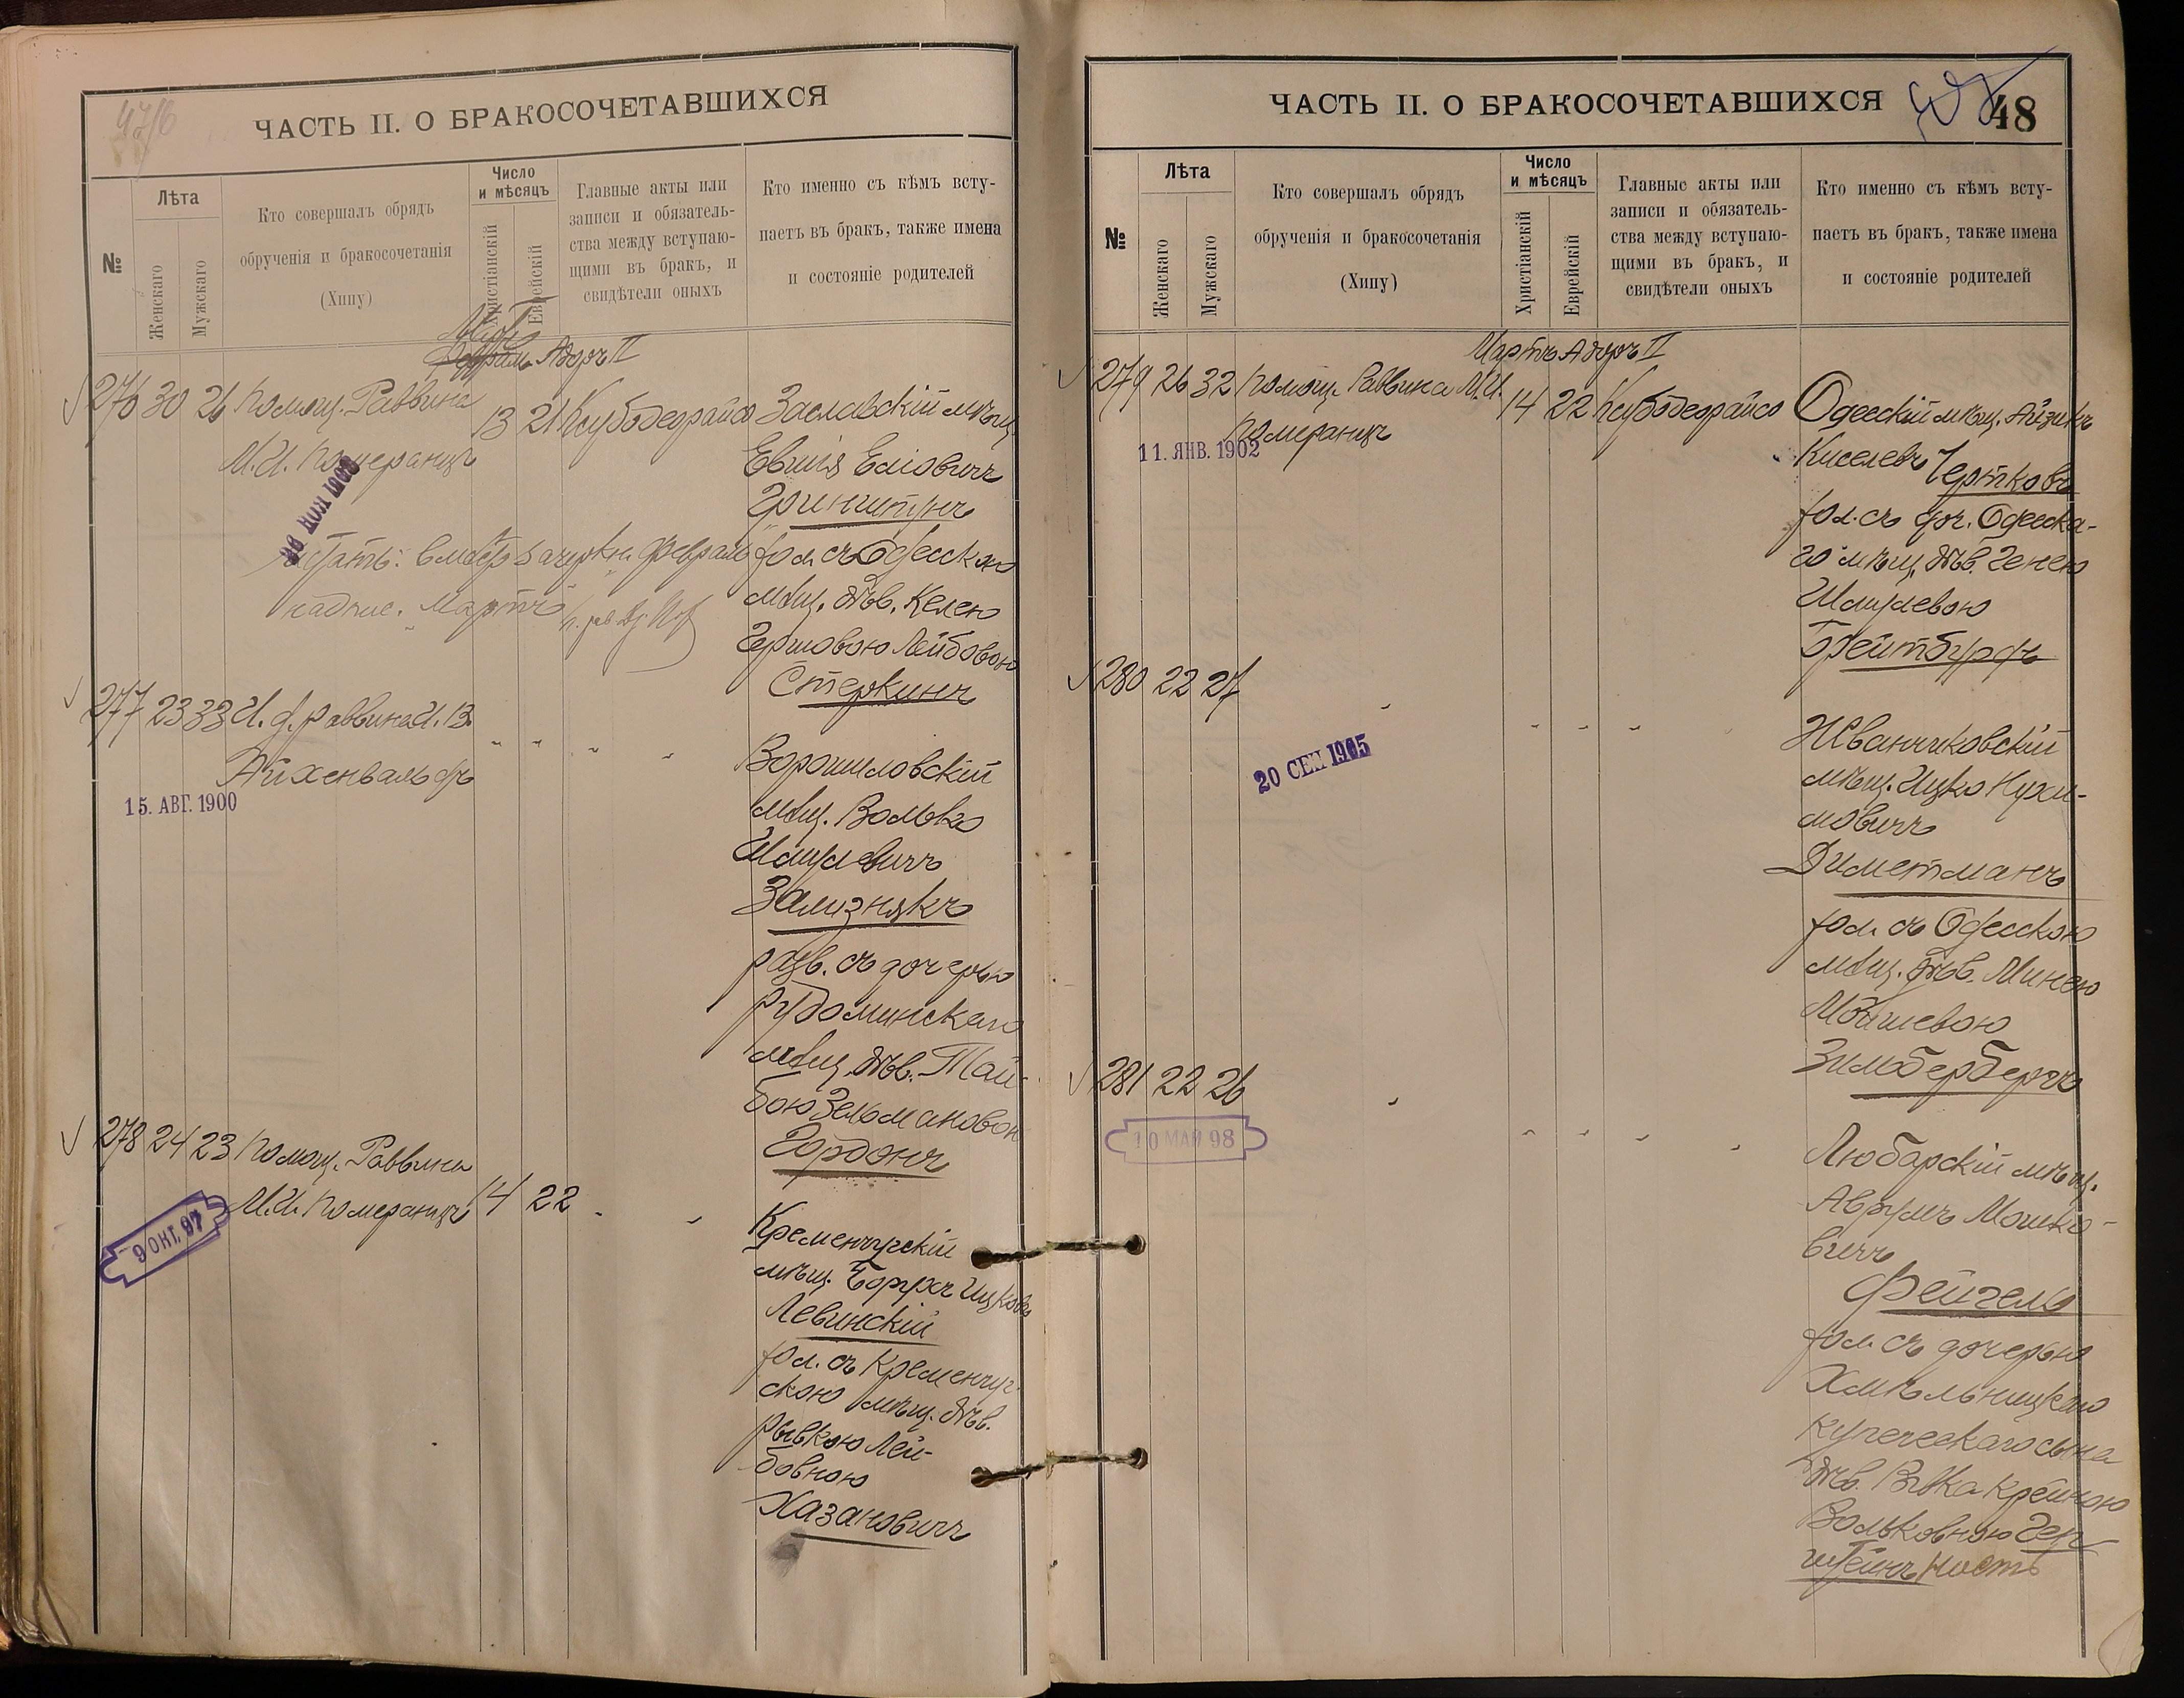 ЧАСТЬ II. О БРАКОСОЧЕТАВШИХСЯ
№
Лѣта
Женскаго
Мужскаго
Кто совершалъ обрядъ
обрученія и бракосочетанія
(Хипу)
Число
и мѣсяцъ
Христіанскій
Еврейскій
Главные акты или
записи и обязатель-
ства между вступаю-
щими въ бракъ, и
свидѣтели оныхъ
Кто именно съ кѣмъ всту-
паетъ въ бракъ, также имена
и состояніе родителей
Мартъ
Февраль Адоръ II
276 30 26 Помощ. Раввина
М.И. Померанцъ
13 21 Ксубодеорайсо
Заславскій мѣщ.
Евшія Еліовичъ
Гринштунъ
хол. съ Одесскою
мѣщ. дѣв. Келею
Гершовою Лейбовою
Стеркинъ
вмѣсто зачеркн. февраль
надпис. Мартъ
277 23 33 И. д. раввина И. В.
Айхенвальдъ
15. АВГ. 1900
Ворошиловскій
мѣщ. Волько
Шмулевичъ
Зализнякъ
разв. съ дочерью
Рудоминскаго
мѣщ. дѣв. Тай-
бою Зельмановою
Гордонъ
278 24 23 Помощ. Раввина
М.И. Померанцъ
14 22
9 ОКТ. 97
Кременчугскій
мѣщ. Борухъ Ицковъ
Левинскій
хол. съ Кременчуг-
скою мѣщ. дѣв.
Рывкою Лей-
бовною
Хазановичъ
ЧАСТЬ II. О БРАКОСОЧЕТАВШИХСЯ
48
№
Лѣта
Женскаго
Мужскаго
Кто совершалъ обрядъ
обрученія и бракосочетанія
(Хипу)
Число
и мѣсяцъ
Христіанскій
Еврейскій
Главные акты или
записи и обязатель-
ства между вступаю-
щими въ бракъ, и
свидѣтели оныхъ
Кто именно съ кѣмъ всту-
паетъ въ бракъ, также имена
и состояніе родителей
Мартъ Адоръ II
279 26 32 Помощ. Раввина М.И.
Померанцъ
11. ЯНВ. 1902
14 22 Ксубодеорайсо
Одесскій мѣщ. Айзикъ
Киселевъ Чертковъ
хол. съ доч. Одесска-
го мѣщ. дѣв. Генею
Шмулевою
Брейтбурдъ
280 22 27
20 СЕН 1905
Жванчиковскій
мѣщ. Ицко Нухи-
мовичъ
Диметманъ
хол. съ Одесскою
мѣщ. дѣв. Минею
Мошевою
Зильбербергъ
281 22 26
10 МАЙ 98
Любарскій мѣщ.
Аврумъ Мошко-
вичъ
Фейгель
хол. съ дочерью
Хмѣльницкаго
купеческаго сына
дѣв. Ривка Крейною
Вольковною Геп
штейнъ